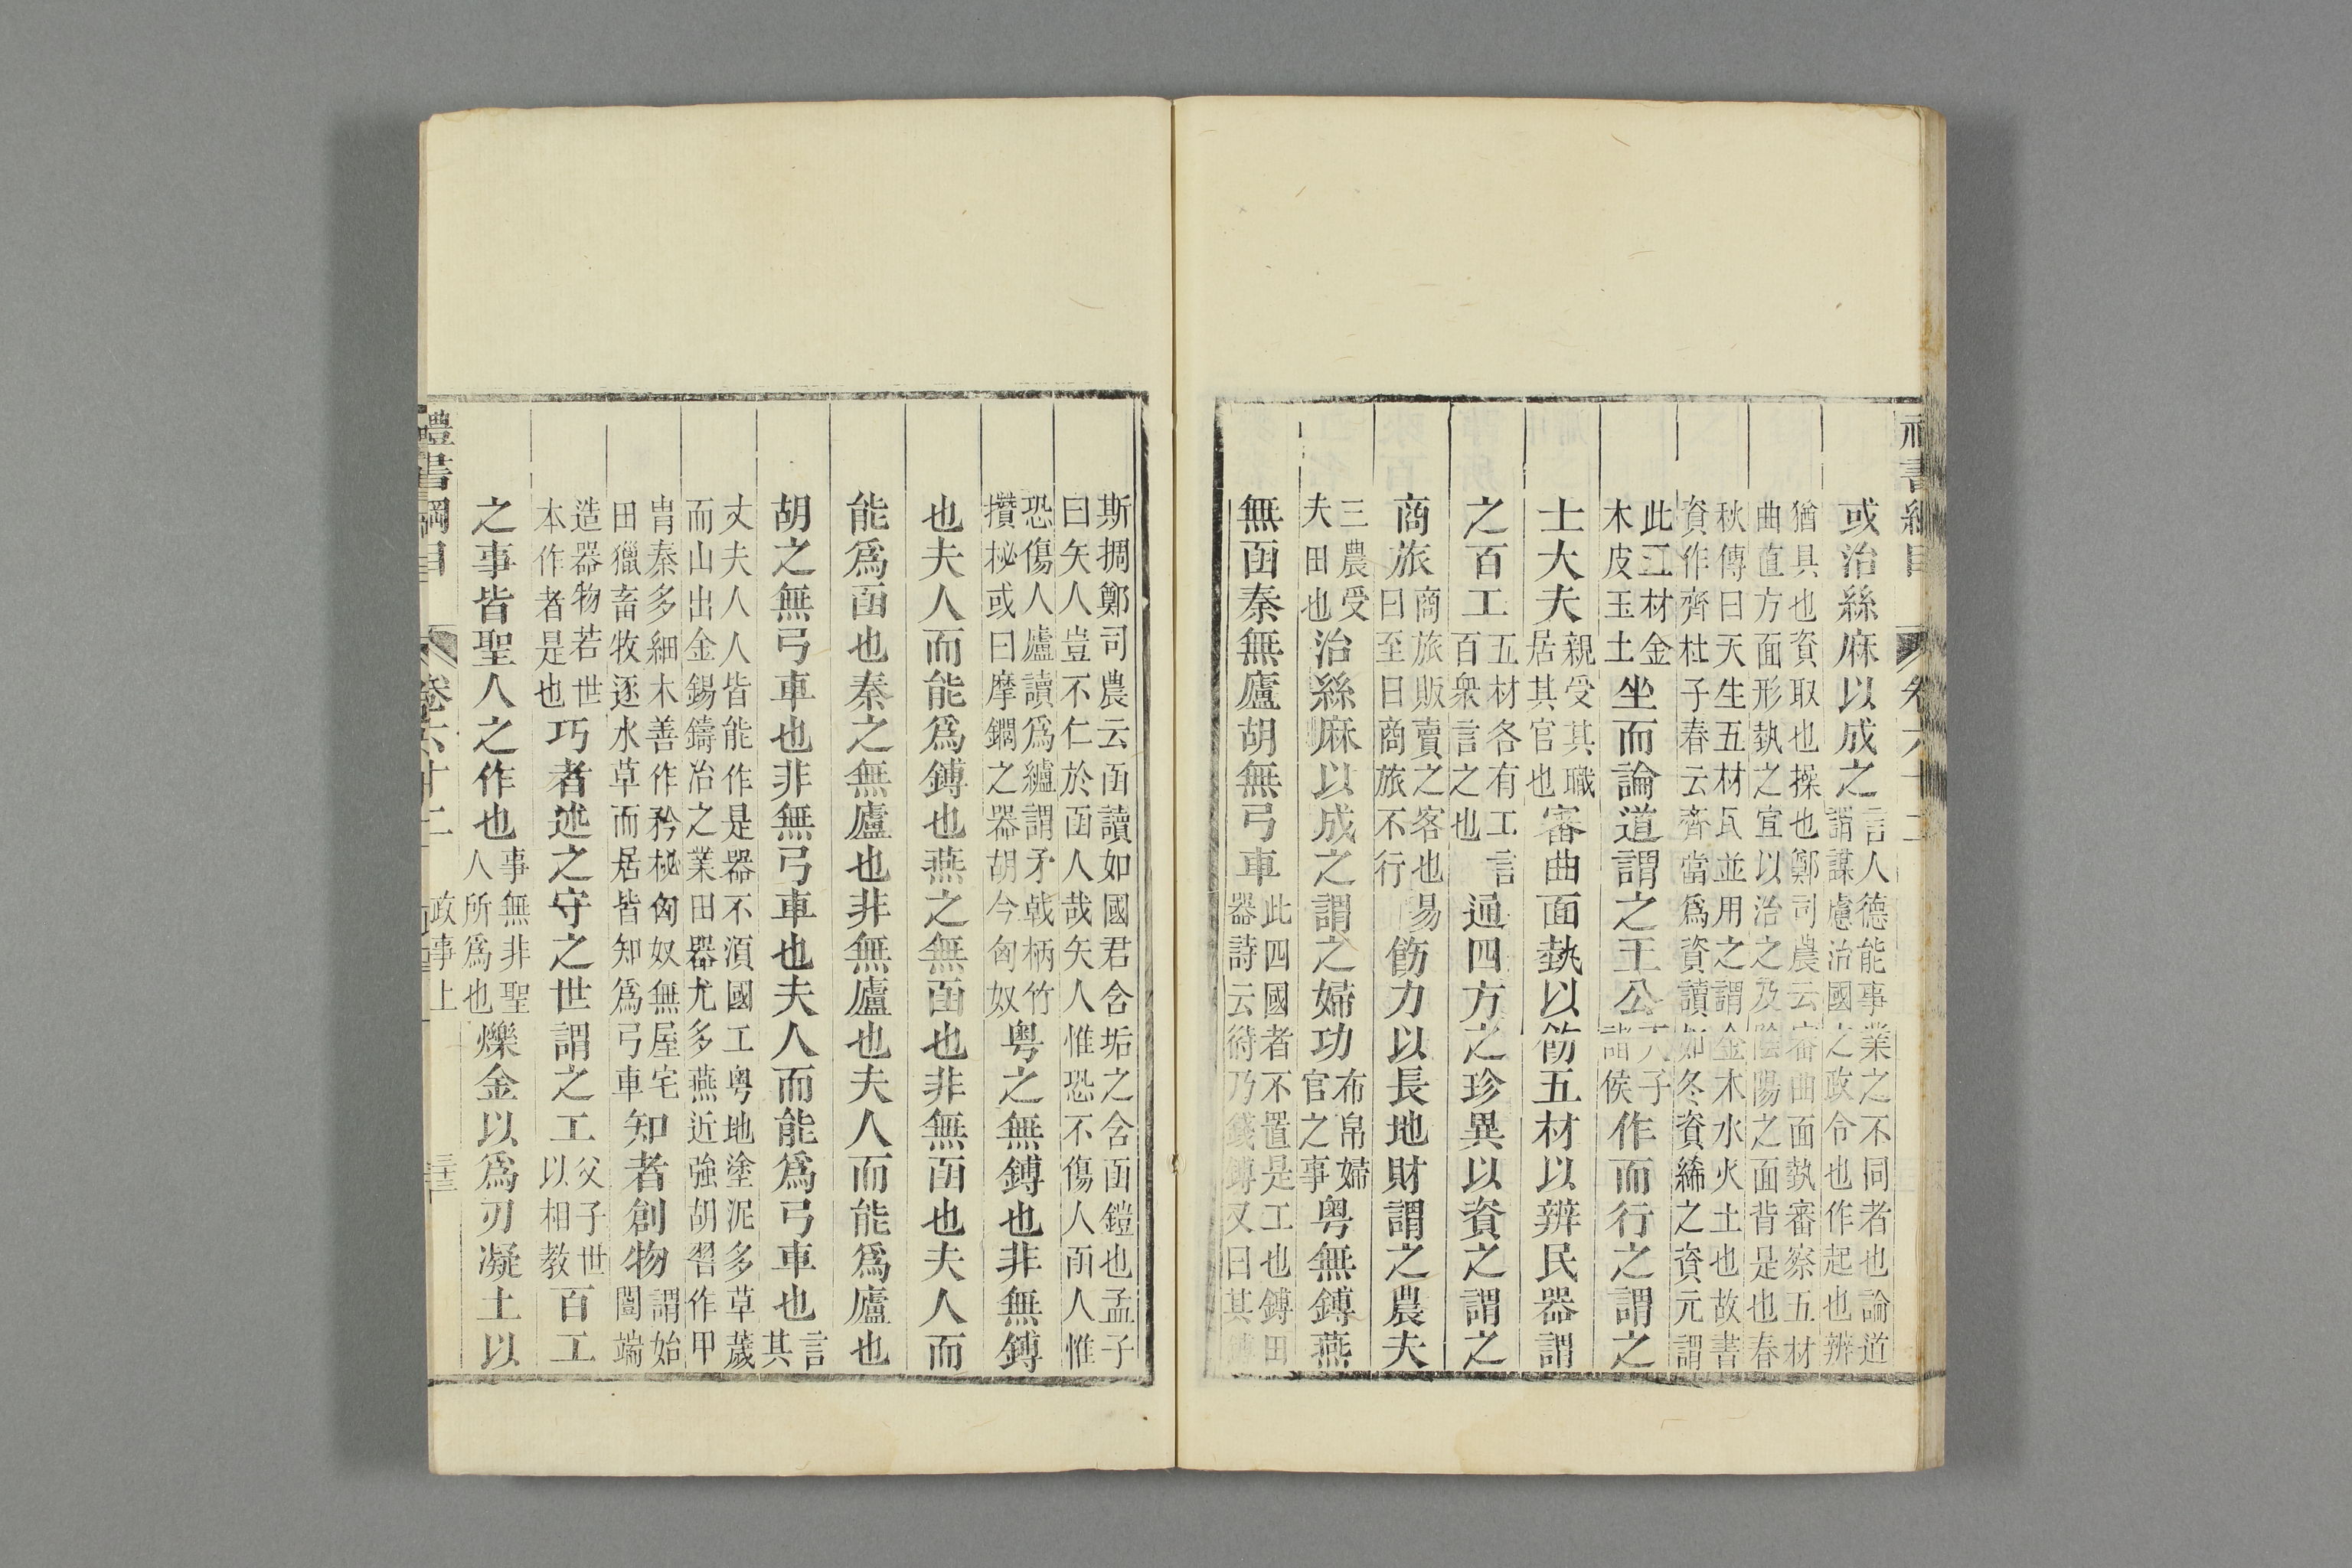 或治絲麻以成之言人德能事業之不同者也論道
謂謀慮治國之政令也作起也辨
猶具也資取也操也鄭司農云審曲面埶審察五材
曲直方面形埶之宜以治之及陰陽之面背是也春
秋傳曰天生五材民並用之謂金木水火土也故書
資作齊杜子春云齊當爲資讀如冬資絺之資元謂
此工材金
木皮玉土坐而論道謂之王公天子
諸侯作而行之謂之
士大夫親受其職
居其官也審曲面埶以飭五材以辨民器謂
之百工五材各有工言
百衆言之也通四方之珍異以資之謂之
商旅商旅販賣之客也易
曰至日商旅不行飭力以長地財謂之農夫
三農受
夫田也治絲麻以成之謂之婦功布帛婦
官之事粵無鎛燕
無函秦無廬胡無弓車此四國者不置是工也鎛田
器詩云偫乃錢鎛又曰其鎛
斯搁鄭司農云函讀如國君含垢之含函鎧也孟子
曰矢人豈不仁於函人哉矢人惟恐不傷人函人惟
恐傷人廬讀爲纑謂矛戟柄竹
攢柲或曰摩鐗之器胡今匈奴粵之無鎛也非無鎛
也夫人而能爲鎛也燕之無函也非無函也夫人而
能爲函也秦之無廬也非無廬也夫人而能爲廬也
胡之無弓車也非無弓車也夫人而能爲弓車也言
其
丈夫人人皆能作是器不須國工粵地塗泥多草薉
而山出金錫鑄冶之業田器尤多燕近強胡習作甲
胄秦多細木善作矜柲匈奴無屋宅
田獵畜牧逐水草而居皆知爲弓車知者創物謂始
闓端
造器物若世
本作者是也巧者述之守之世謂之工父子世
以相教百工
之事皆聖人之作也事無非聖
人所爲也爍金以爲刃凝土以
禮書綱目
卷六十二
政事上
三十三